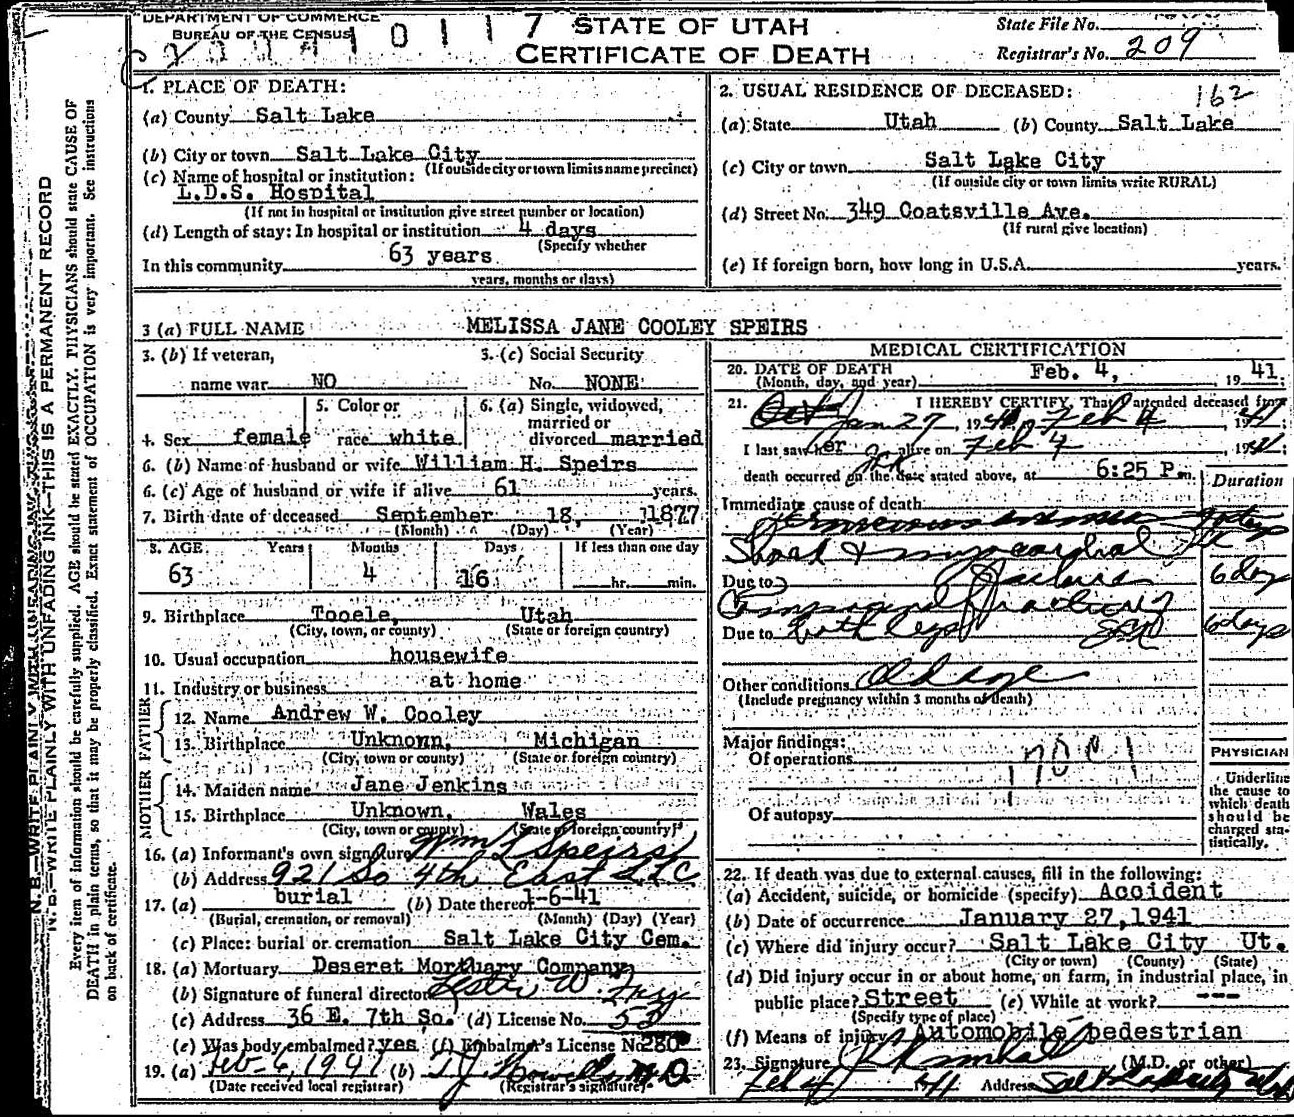 DEPARTMENT OF COMMERCE
BUREAU OF THE CENSUS
STATE OF UTAH
CERTIFICATE OF DEATH
State File No.
Registrar's No. 209
1. PLACE OF DEATH:
(a) County Salt Lake
(b) City or town Salt Lake City
(If outside city or town limits name precinct)
(c) Name of hospital or institution:
L.D.S. Hospital
(If not in hospital or institution give street number or location)
(d) Length of stay: In hospital or institution 4 days
(Specify whether
In this community 63 years
years, months or days)
2. USUAL RESIDENCE OF DECEASED:
162
(a) State Utah (b) County Salt Lake
(c) City or town Salt Lake City
(If outside city or town limits write RURAL)
(d) Street No. 349 Coatsville Ave.
(If rural give location)
(e) If foreign born, how long in U.S.A. years.
3 (a) FULL NAME MELISSA JANE COOLEY SPEIRS
3. (b) If veteran, name war NO
3. (c) Social Security No. NONE
4. Sex female
5. Color or race white
6. (a) Single, widowed, married or divorced married
6. (b) Name of husband or wife William H. Speirs
6. (c) Age of husband or wife if alive 61 years.
7. Birth date of deceased September 18, 1877
(Month) (Day) (Year)
8. AGE Years Months Days If less than one day
63 4 16 hr. min.
9. Birthplace Tooele, Utah
(City, town, or county) (State or foreign country)
10. Usual occupation housewife
11. Industry or business at home
FATHER
12. Name Andrew W. Cooley
13. Birthplace Unknown, Michigan
(City, town or county) (State or foreign country)
MOTHER
14. Maiden name Jane Jenkins
15. Birthplace Unknown, Wales
(City, town or county) (State or foreign country)
16. (a) Informant's own signature Wm Speirs
(b) Address 921 So 4th East SLC
17. (a) burial (b) Date thereof 1-6-41
(Burial, cremation, or removal) (Month) (Day) (Year)
(c) Place: burial or cremation Salt Lake City Cem.
18. (a) Mortuary Deseret Mortuary Company
(b) Signature of funeral director Leslie W.
(c) Address 36 E. 7th So. (d) License No. 53
(e) Was body embalmed? yes (f) Embalmer's License No. 280
19. (a) Feb-6, 1941 (b) T.J. Howells M.D.
(Date received local registrar) (Registrar's signature)
MEDICAL CERTIFICATION
20. DATE OF DEATH Feb. 4, 1941
(Month, day, and year)
21. I HEREBY CERTIFY, That I attended deceased from
Jan 27, 1941 to Feb 4 1941
I last saw her alive on Feb 4 1941
death occurred on the date stated above, at 6:25 P m.
Duration
Immediate cause of death
Shock & myocardial
Due to failure 6 day
Compound fractures
Due to both legs 6 days
Other conditions Old age
(Include pregnancy within 3 months of death)
Major findings:
Of operations
Of autopsy
PHYSICIAN
Underline the cause to which death should be charged statistically.
22. If death was due to external causes, fill in the following:
(a) Accident, suicide, or homicide (specify) Accident
(b) Date of occurrence January 27, 1941
(c) Where did injury occur? Salt Lake City Ut.
(City or town) (County) (State)
(d) Did injury occur in or about home, on farm, in industrial place, in
public place? Street (e) While at work? ---
(Specify type of place)
(f) Means of injury Automobile pedestrian
23. Signature (M.D. or other)
Feb 4/ 41 Address Salt Lake City Utah
N. B.—WRITE PLAINLY WITH UNFADING INK—THIS IS A PERMANENT RECORD
Every item of information should be carefully supplied. AGE should be stated EXACTLY. PHYSICIANS should state CAUSE OF
DEATH in plain terms, so that it may be properly classified. Exact statement of OCCUPATION is very important. See instructions
on back of certificate.